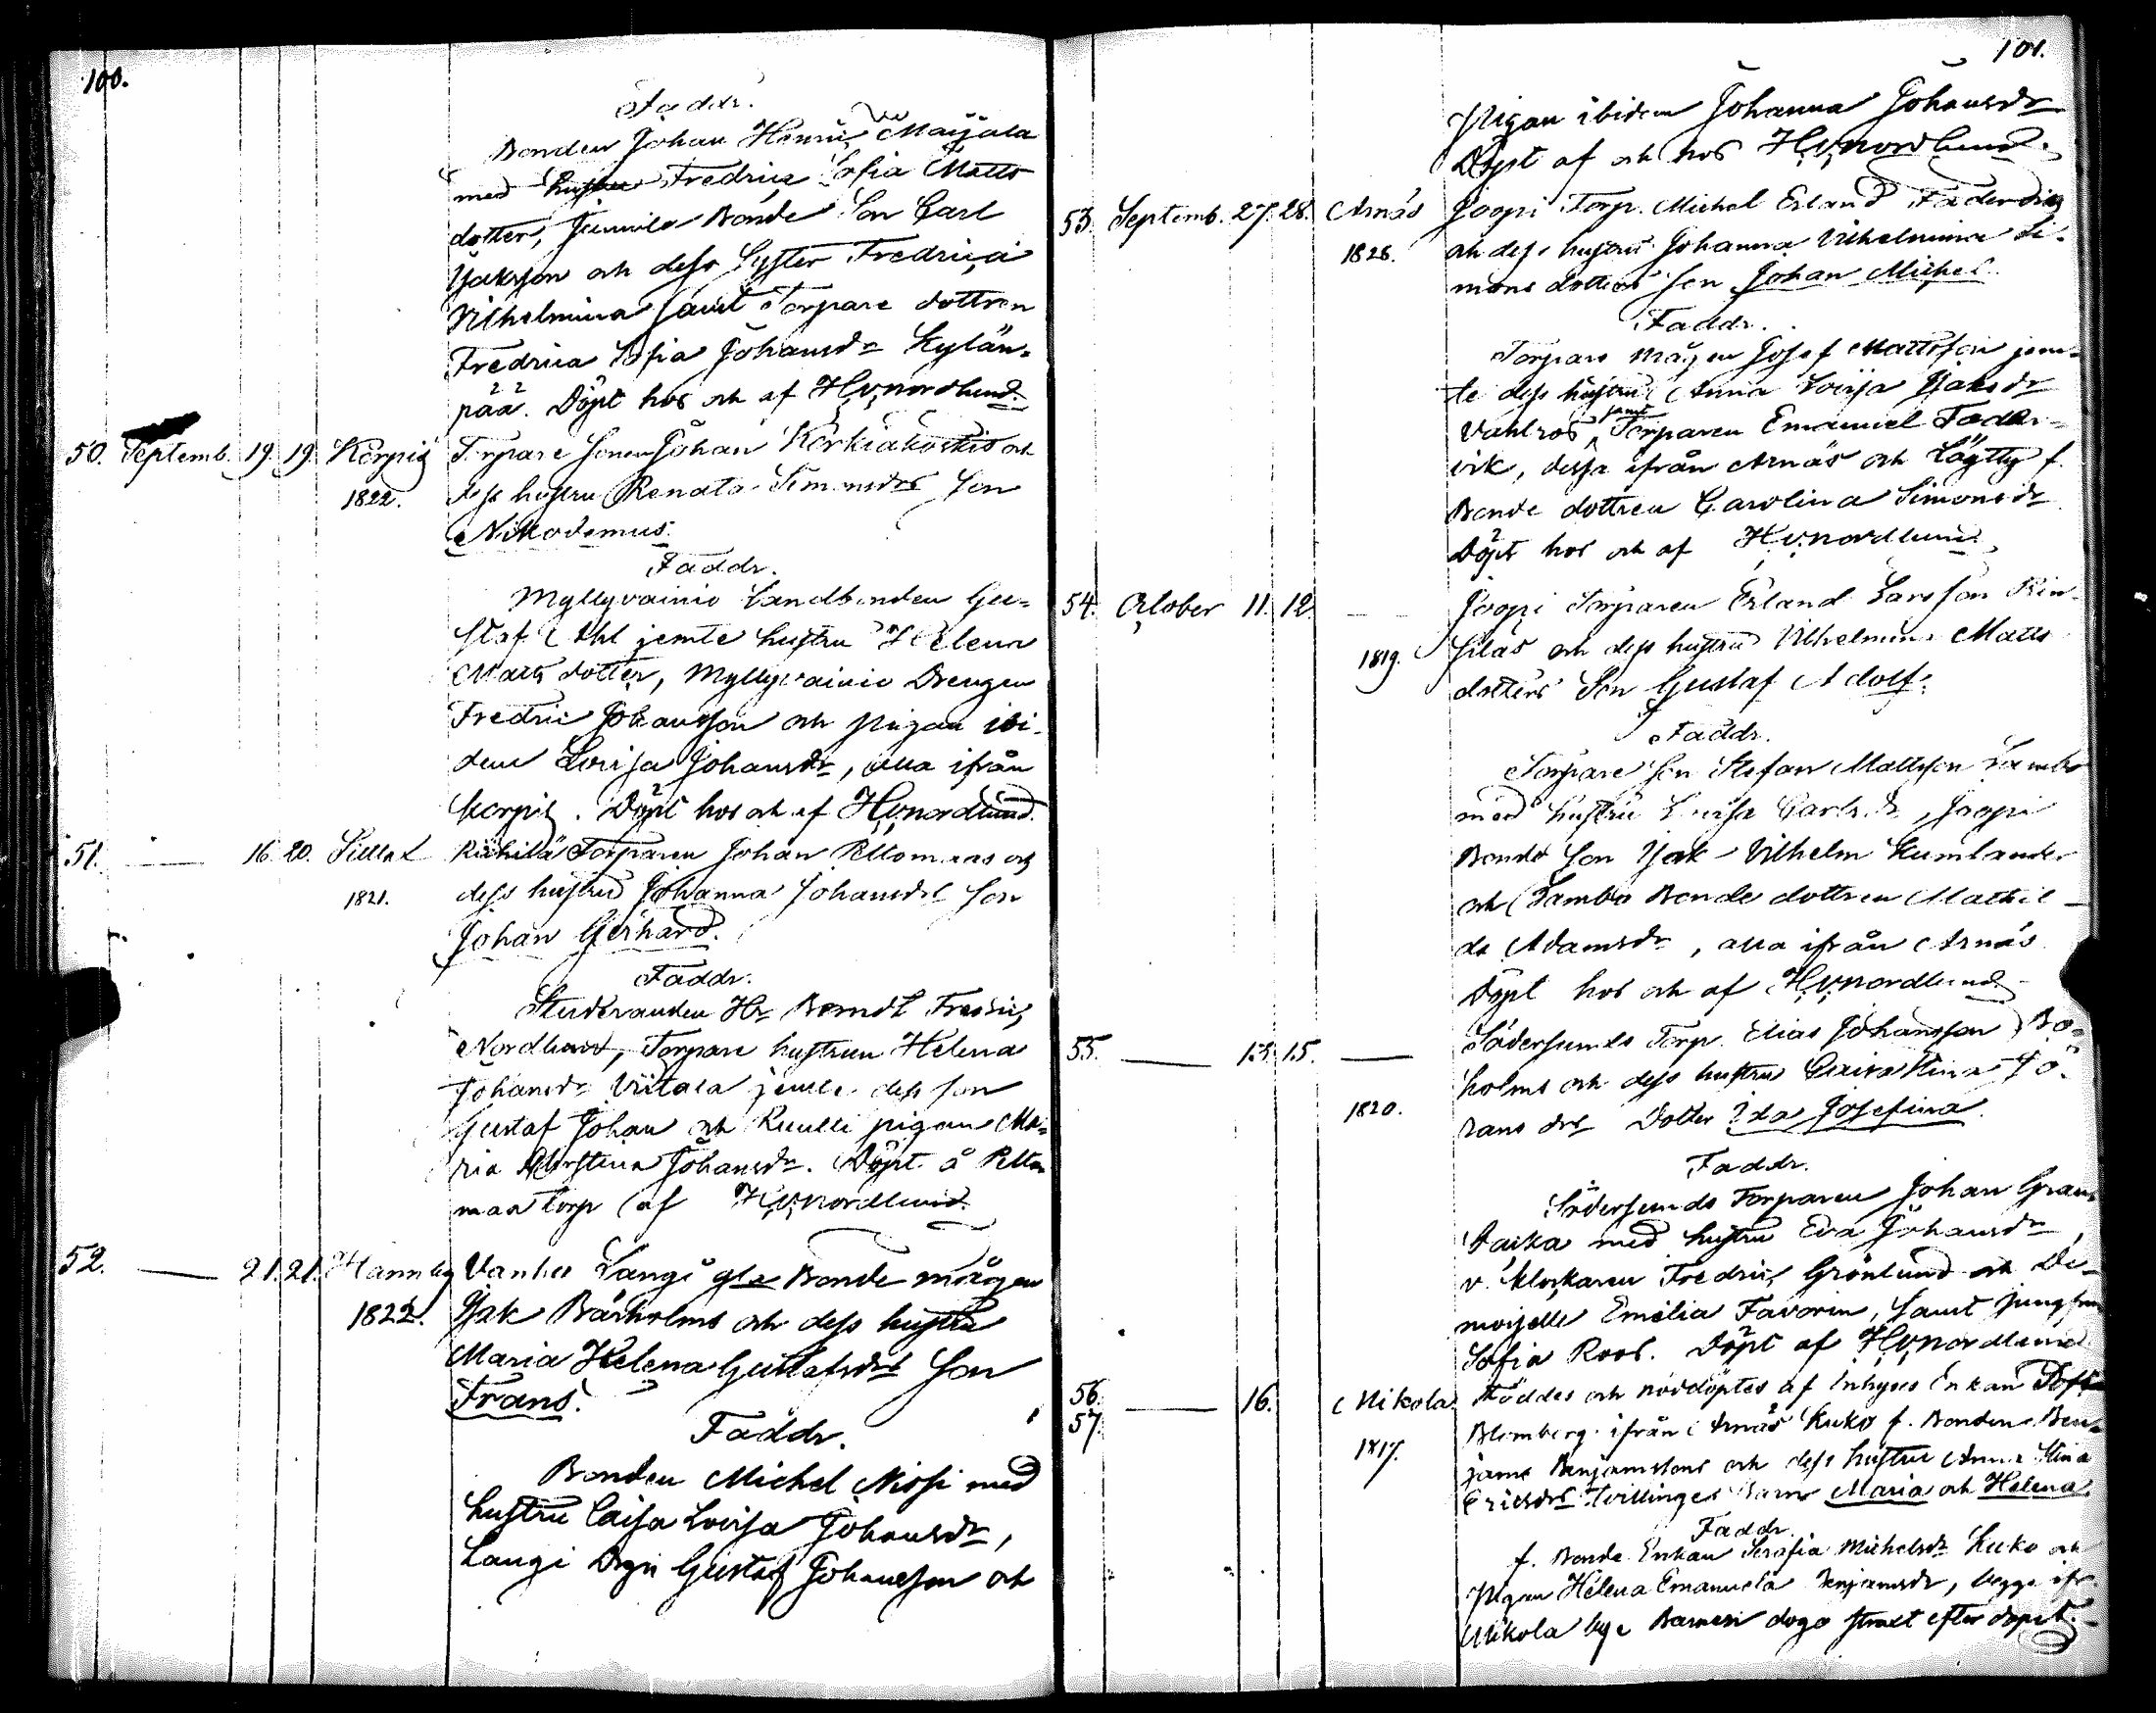 100.
Faddr.
Bonden Johan Henric Maijala
med hustru Fredrica Sofia Matts
dotter, Junnila Bonde Son Carl
Jakssson och dess Syster Fredrica
Vilhelmina samt Torpare dottren
Fredrica Sofia Johansdr Kylän-
pää. Döpt hos och af H.v.nordlund.
50. Septemb. 19. 19. Korpis Torpare sonen Johan Korkiakoskis och
1822. dess hustru Renata Simonsdrs Son
Nikodemus.
Faddr.
Myllyvainio Landbonden Gu-
staf jemte hustru Helena
Matts dotter, Myllyvainio Drengen
Fredric Johansson och pigan ibi-
dem Lovisa Johansdr, alla ifrån
Korpis. Döpt hos och af H.v.nordlund.
51. — 16. 20. Sillat Riihilä Torparen Johan Peltomaas och
1821. dess hustru Johanna Johansdrs Son
Johan Gerhard.
Faddr.
Studeranden Hr Berndt Fredric
Nordlund, Torpare hustrun Helena
Johansdr Viitala jemte dess son
Gustaf Johan och Ruulli pigan Ma-
ria Christina Johansdr. Döpt å Pelto-
maa torp af H.v.nordlund.
52. — 21. 21. Hannby Vanha Langi gla Bonde mågen
1822. Jak Bärholms och dess hustru
Maria Helena Gustafsdrs Son
Frans.
Faddr.
Bonden Michel Nissi med
hustru Caisa Lovisa Johansdr,
Langi Drgn Gustaf Johansson och
101.
Pigan ibidem Johanna Johansdr
Döpt af och hos H.v.nordlund.
53. Septemb. 27. 28. Arnäs Joopi Torp. Michel Erland Faderviks
1828. och dess hustrus Johanna Vilhelmina Si-
mons dotters Son Johan Michel.
Faddr.
Torpare mågen Josef Mattsson jem-
te dess hustru Anna Lovisa Jaksdr
Vahlros, samt Torparen Emanuel Fader-
vik, dessa ifrån Arnäs och Löytty f.
Bonde dottren Carolina Simonsdr
Döpt hos och af H.v.nordlund.
54. October 11. 12. — Joopi Torparen Erland Larsson Rin-
1819. silas och dess hustrus Vilhelmina Matts
dotters Son Gustaf Adolf.
Faddr.
Torpare Son Stefan Mattsson Lambo
med hustru Lovisa Carlsdr, Joopi
Bonde Son Jak Vilhelm Kumlander
och Lambo Bonde dottren Mathil-
da Adamsdr, alla ifrån Arnäs
Döpt hos och af H.v.nordlund.
55. — 13. 15. — Södersunds Torp. Elias Johansson Bo-
holms och dess hustrus Stina Jö-
1820. rans drs Dotter Ida Josefina.
Faddr.
Södersunds Torparen Johan Gran-
backa med hustru Eva Johansdr,
v. klockaren Fredric Grönlund och De-
moiselle Emelia Favorin, samt jungfrun
Sofia Roos. Döpt af H.v.nordlund
56. 57. — 16. Nikola Föddes och nöddöptes af Inhyses Enkan
1817. Blomberg ifrån Arnäs Kuko f. Bonden Ben-
jams Benjamssons och dess hustrus Anna Stina
Ericsdrs Tvillinges Barn Maria och Helena.
Faddr.
f. Bonde Enkan Serafia Michelsdr Kuko och
Pigan Helena Emanuela Benjamsdr, begge ifr.
Nikola by. Barnen dogo strax efter dopet.